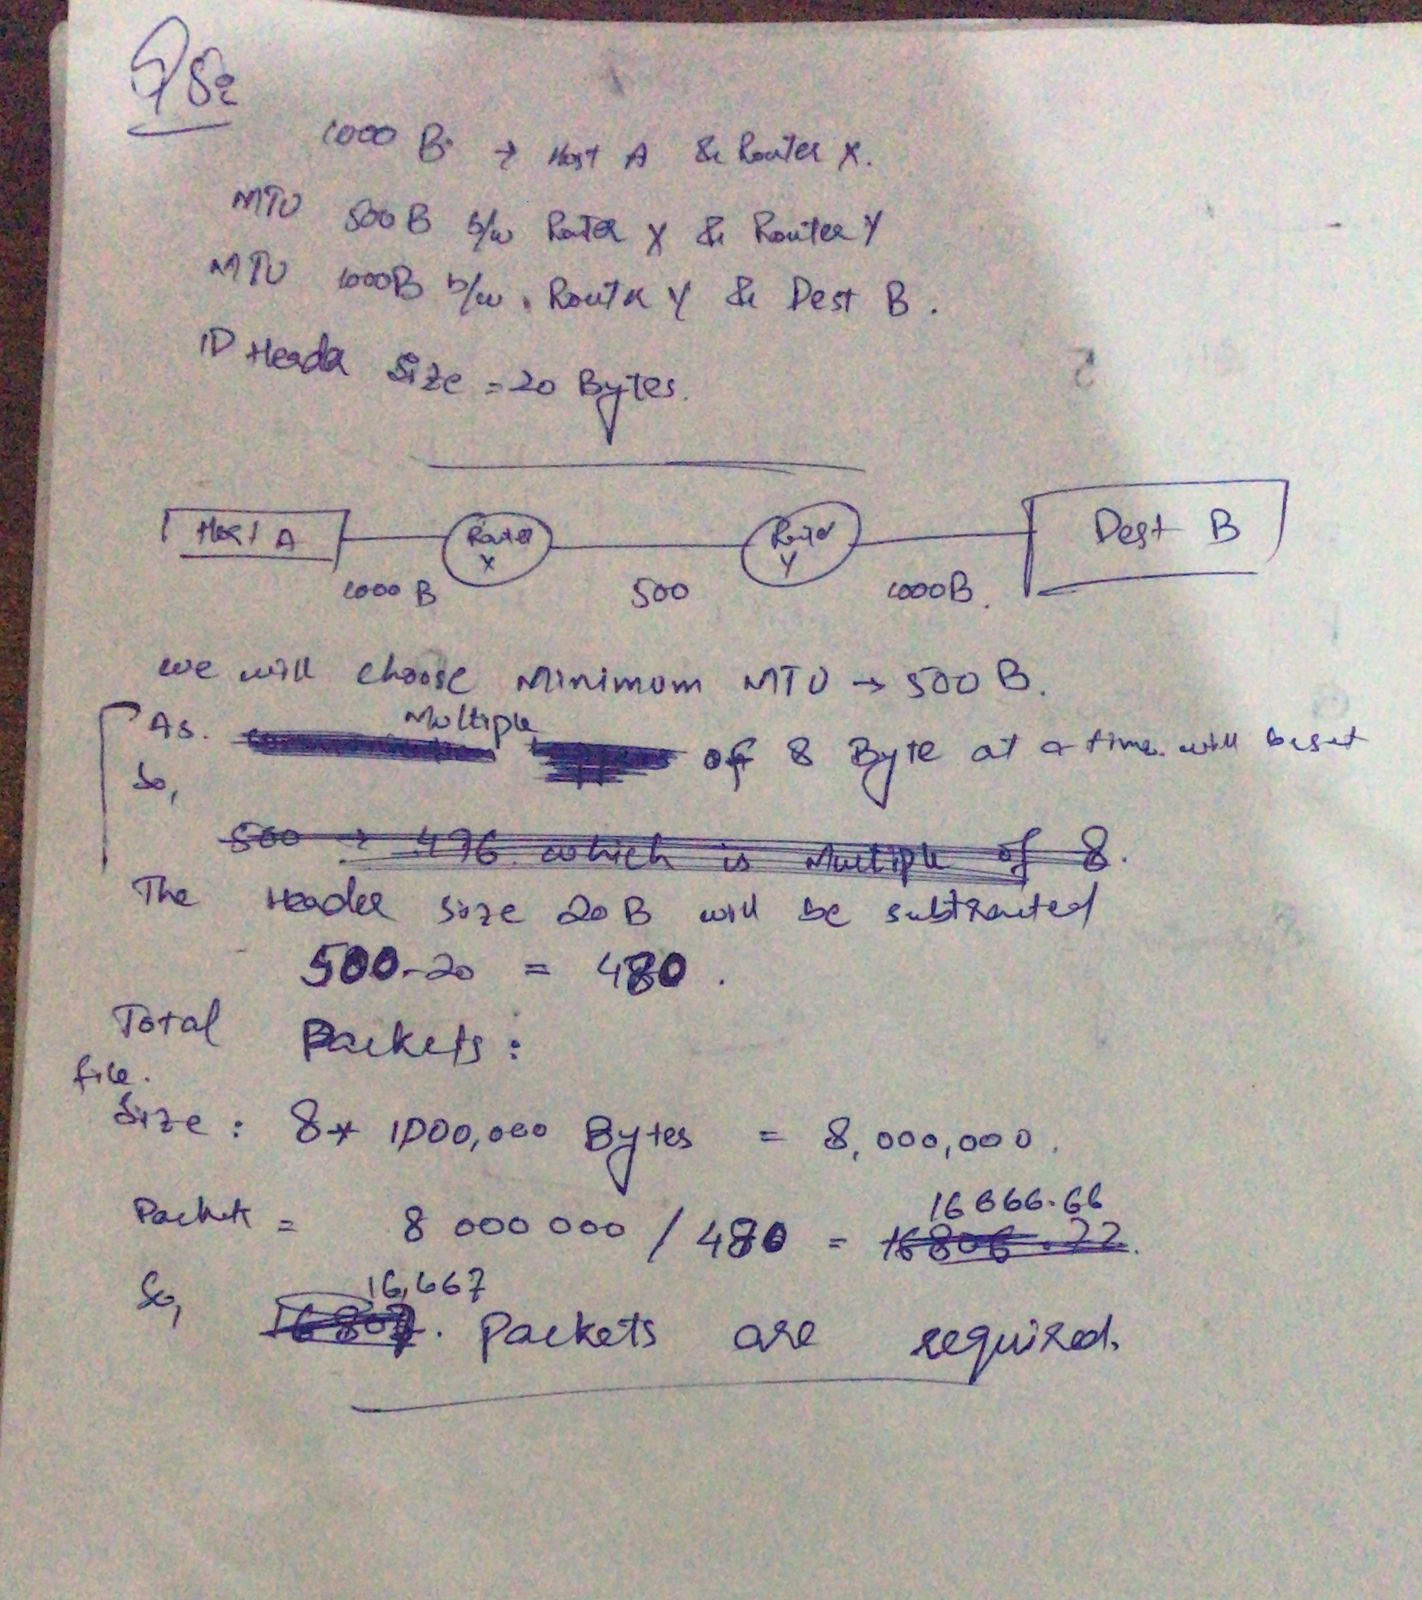 Q5:
1000 B → Host A & Router X.
MTU 500 B b/w Router X & Router Y
MTU 1000B b/w Router Y & Dest B.
IP Header Size = 20 Bytes.
Host A Router X Router Y Dest B
1000 B 500 1000B.
we will choose Minimum MTU → 500 B.
As. Multiple of 8 Byte at a time will be sent
So,
500 → 496 which is Multiple of 8.
The Header size 20B will be subtracted
500-20 = 480.
Total Packets:
file.
Size: 8* 1000,000 Bytes = 8,000,000.
16666.66
Packets = 8 000 000 / 480 = 16806.72.
16,667
So, 16807. packets are required.